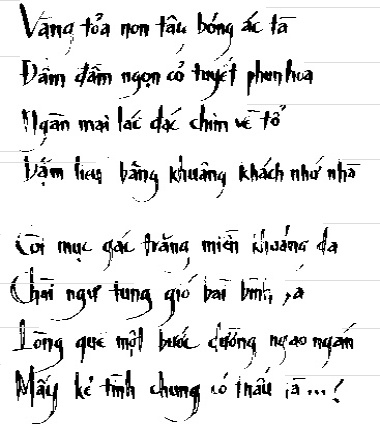 Vàng tỏa non tây bóng ác tà
Đầm đầm ngọn cỏ tuyết phun hoa
Ngàn mai lác đác chim về tổ
Dặm liễu bâng khuâng khách nhớ nhà
Còi mục gác trăng miền khoáng dã
Chài ngư tung gió bãi bình sa
Lòng quê một bước dường ngao ngán
Mấy kẻ tình chung có thấu là...!